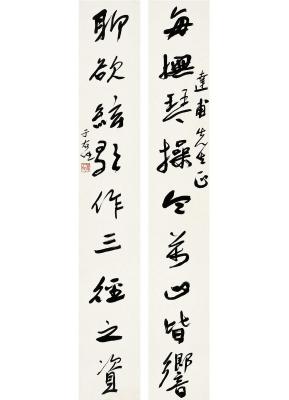 每抚琴操令万山皆响
達甫先生正
聊欲絃歌作三徑之資
于右任